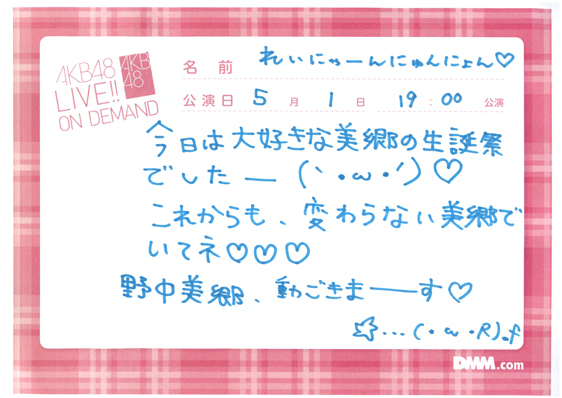 AKB48
LIVE!!
ON DEMAND
AKB
48
名前 れいにゃーんにゅんにょん♡
公演日 5月 1日 19:00 公演
今日は大好きな美郷の生誕祭
でしたー (｀・ω・´)♡
これからも、変わらない美郷で
いてネ♡♡♡
野中美郷、動ごきまーーす♡
☆...(・ω・R)
DMM.com